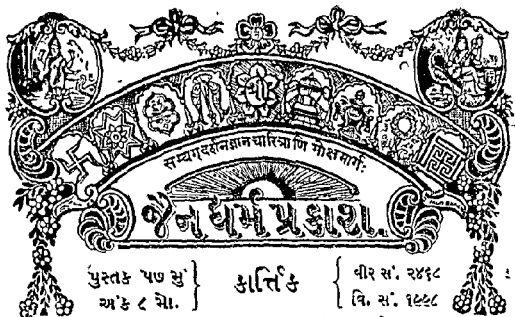 वीर
सम्यग्दर्शनज्ञानचारित्राणि मोक्षमार्गः
જૈન ધર્મ પ્રકાશ.
પુસ્તક ૫૭ મું } કાર્ત્તિક { વીર સં. ૨૪૬૮
અંક ૮ મો. વિ. સં. ૧૯૯૮